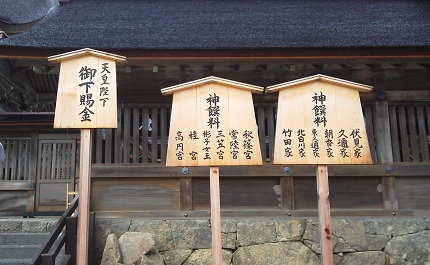 天皇陛下
御下賜金
神饌料
秋篠宮
常陸宮
三笠宮
彬子女王
桂宮
高円宮
神饌料
伏見家
久邇家
朝香家
東久邇家
北白川家
竹田家